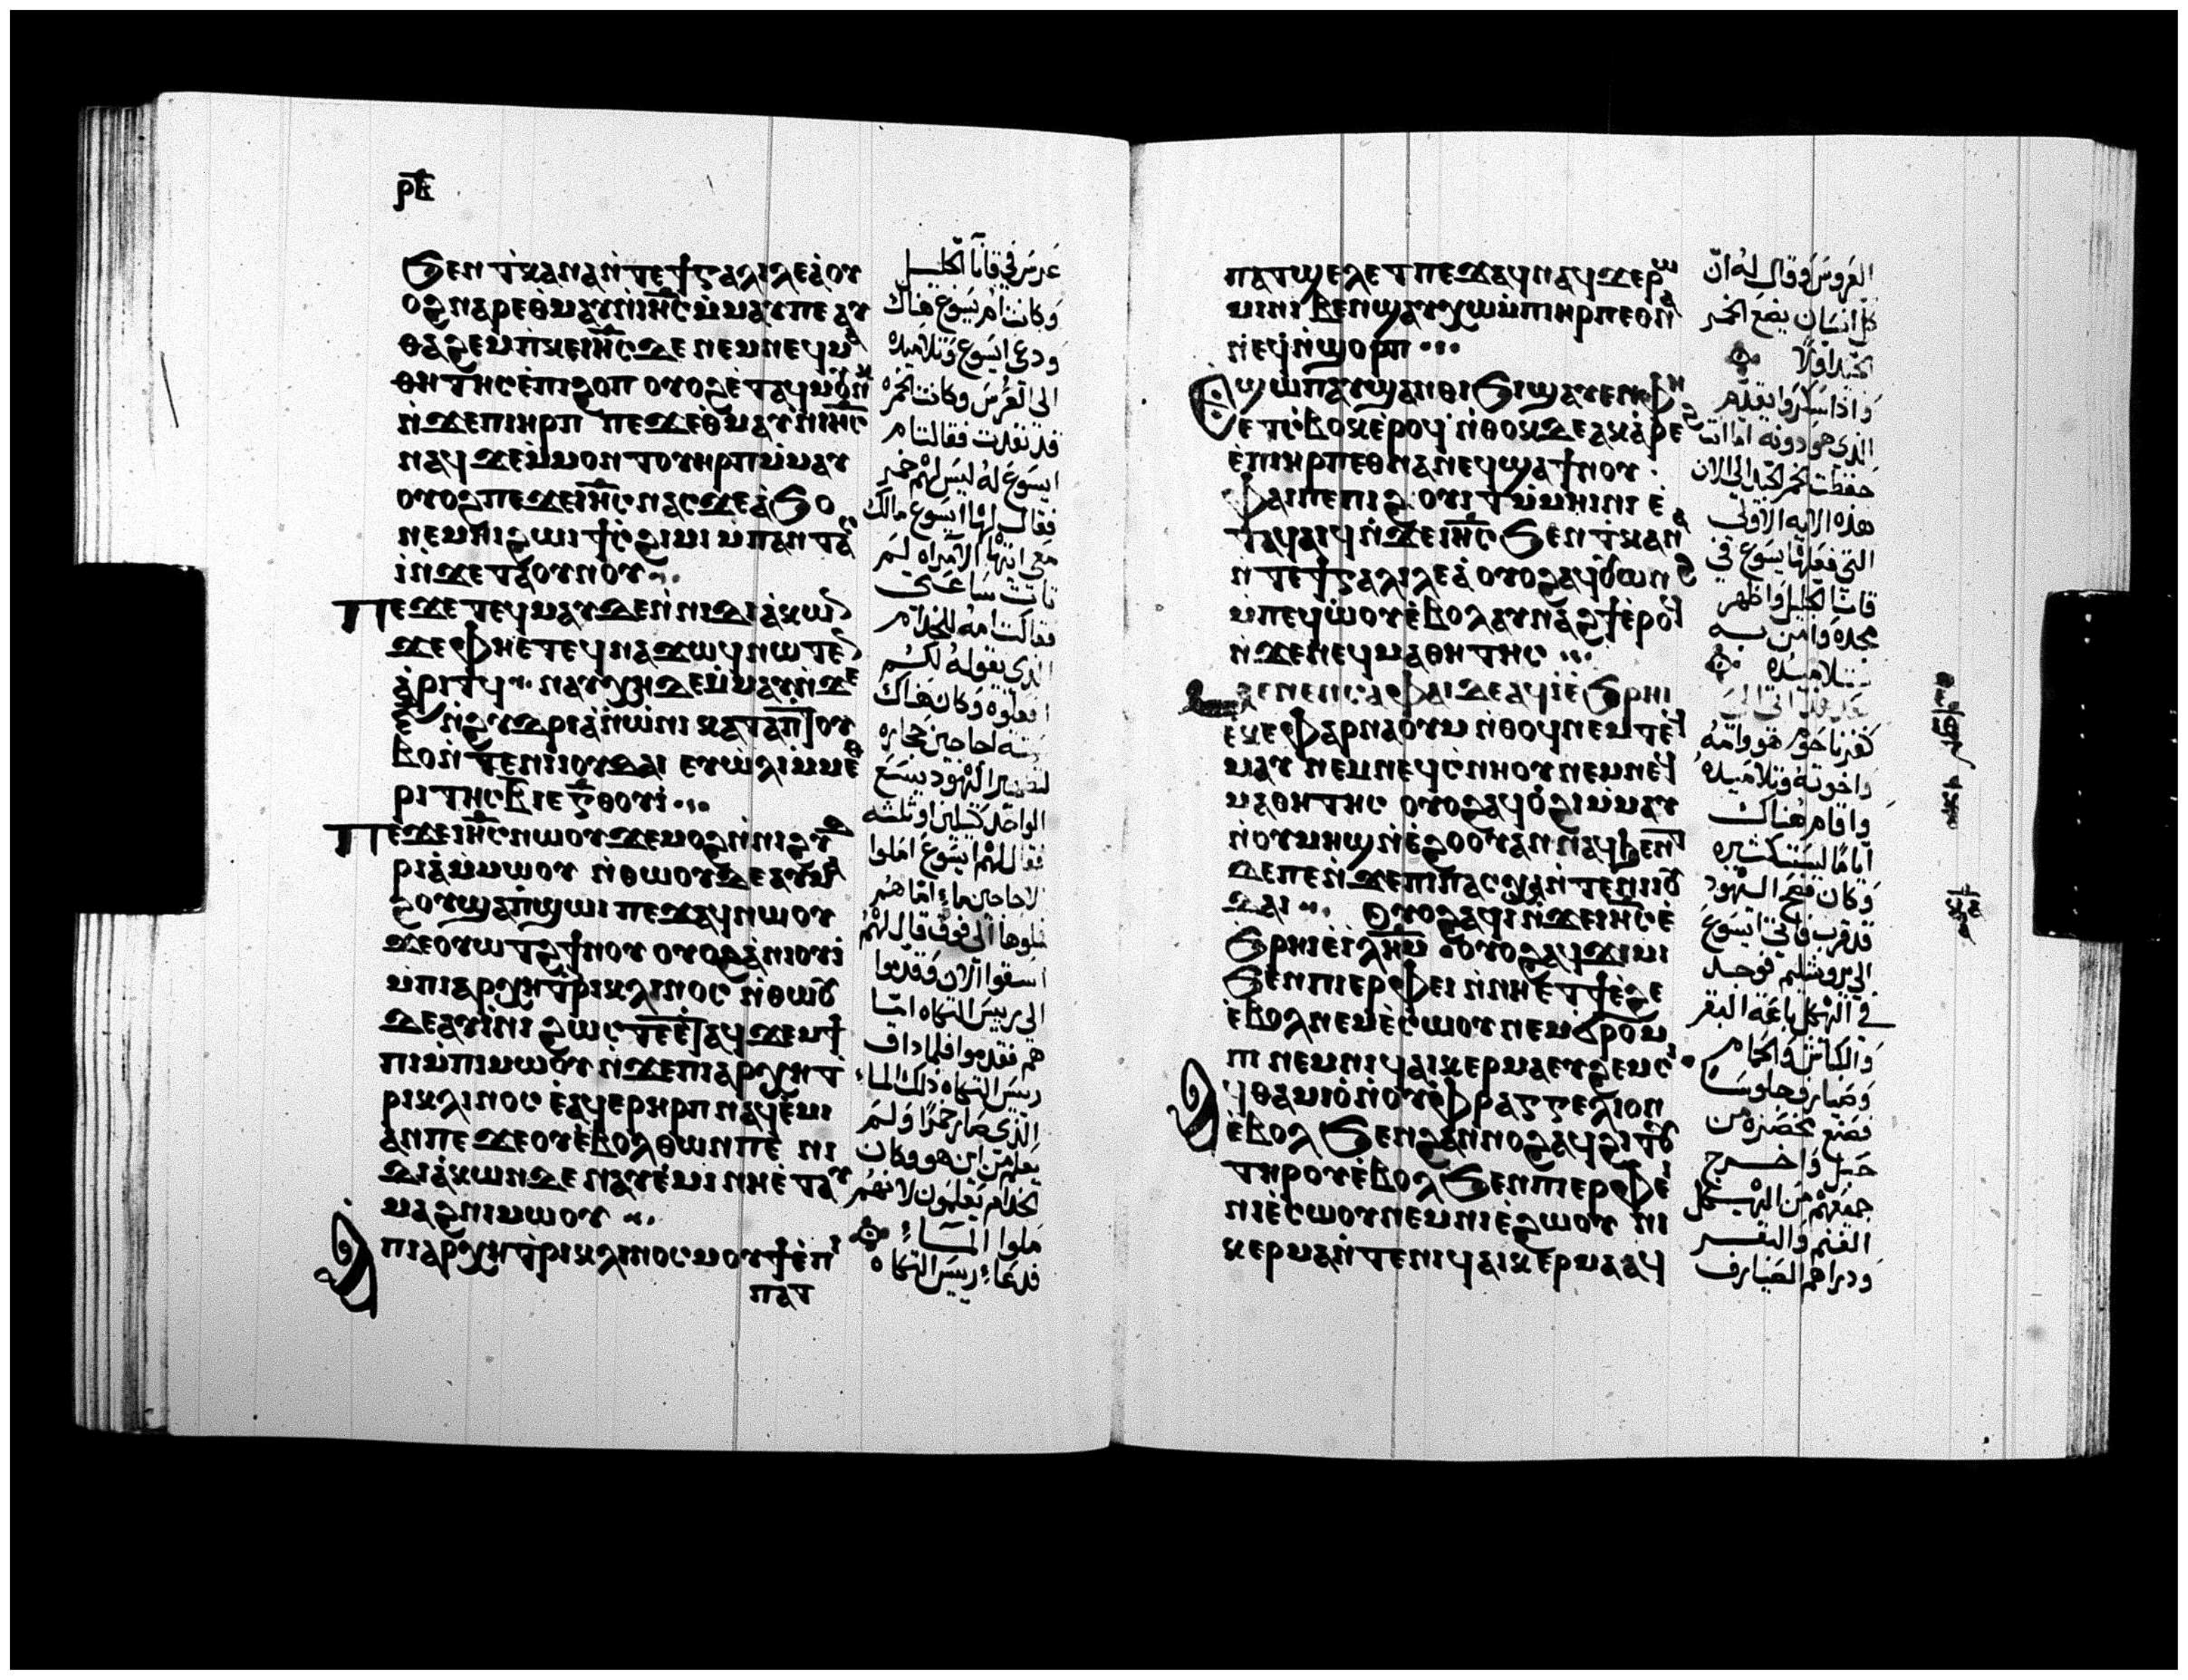 ⲣ̅ⲉ̅
ϧⲉⲛ ⲧ̀ⲕⲁⲛⲁ ⲛ̀ⲧⲉ ϯⲅⲁⲗⲓⲗⲉⲁ̀ ⲟⲩ
ⲟϩ ⲛⲁⲣⲉ ⲑ̀ⲙⲁⲩ ⲛ̀ⲓⲏ̅ⲥ̅ ⲙ̀ⲙⲁⲩ ⲡⲉ ⲁⲩ
ⲑⲁϩⲉⲙ ⲡ̀ⲕⲉⲓⲏ̅ⲥ̅ ⲇⲉ ⲛⲉⲙ ⲛⲉϥⲙⲁ
ⲑⲏⲧⲏⲥ ⲉ̀ⲡⲓϩⲟⲡ ⲟⲩⲟϩ ⲉ̀ⲧⲁϥⲙⲟⲩⲛⲕ
ⲛ̀ϫⲉ ⲡⲓⲏⲣⲡ ⲡⲉϫⲉ ⲑ̀ⲙⲁⲩ ⲛ̀ⲓⲏ̅ⲥ̅
ⲛⲁϥ ϫⲉ ⲙ̀ⲙⲟⲛ ⲧⲟⲩ ⲏⲣⲡ ⲙ̀ⲙⲁⲩ
ⲟⲩⲟϩ ⲡⲉϫⲉ ⲓⲏ̅ⲥ̅ ⲛⲁⲥ ϫⲉ ⲁ̀ϧⲟ
ⲛⲉⲙⲏⲓ ϩⲱⲓ ϯⲥ̀ϩⲓⲙⲓ ⲙ̀ⲡⲁⲛⲧⲉⲥ
ⲓ̀ ⲛ̀ϫⲉ ⲧⲁⲟⲩⲛⲟⲩ
ⲡⲉϫⲉ ⲧⲉϥⲙⲁⲩ ⲇⲉ ⲛ̀ⲛⲓⲇⲓⲁ̀ⲕⲱⲛ
ϫⲉ ⲫⲏ ⲉⲧⲉϥⲛⲁϫⲟϥ ⲛⲱⲧⲉⲛ
ⲁ̀ⲣⲓⲧϥ ⲛⲁⲩⲭⲏ ⲇⲉ ⲙ̀ⲙⲁⲩ ⲛ̀ϫⲉ
ⲋ̅ ⲛ̀ϩⲩⲇⲣⲓⲁ̀ ⲛ̀ⲱ̀ⲛⲓ ⲕⲁⲧⲁ ⲡⲓⲧⲟⲩ
ⲃⲟ ⲛ̀ⲧⲉ ⲛⲓⲓⲟⲩⲇⲁⲓ ⲉⲩⲱ̀ⲗⲓ ⲙ̀ⲙⲉⲧ
ⲣⲓⲧⲏⲥ ⲃ̅ ⲓⲉ ⲅ̅ ⲑⲟⲩⲓ̀
ⲡⲉϫⲉ ⲓⲏ̅ⲥ̅ ⲛⲱⲟⲩ ϫⲉ ⲙⲟϩ ⲛ̀ⲛⲓϩⲩⲇ
ⲣⲓⲁ̀ ⲙ̀ⲙⲱⲟⲩ ⲛ̀ⲑⲱⲟⲩ ⲇⲉ ⲁⲩⲙⲁ
ϩⲟⲩ ϣⲁ ⲡ̀ϣⲱⲓ ⲡⲉϫⲁϥ ⲛⲱⲟⲩ
ϫⲉ ⲟⲩⲱⲧϩ ϯⲛⲟⲩ ⲟⲩⲟϩ ⲁ̀ⲛⲓⲟⲩⲓ̀
ⲙ̀ⲡⲓⲁⲣⲭⲏⲧⲣⲓⲕⲗⲓⲛⲟⲥ ⲛ̀ⲑⲱⲟⲩ
ⲇⲉ ⲁⲩⲓ̀ⲛⲓ ϩⲱⲥ ⲇⲉ ⲉ̀ⲧⲁϥϫⲉⲙϯ
ⲡⲓ ⲙ̀ⲡⲓⲙⲱⲟⲩ ⲛ̀ϫⲉ ⲡⲓⲁⲣⲭⲏⲧ
ⲣⲓⲕⲗⲓⲛⲟⲥ ⲉ̀ⲁϥⲉⲣⲏⲣⲡ ⲛⲁϥⲉ̀ⲙⲓ
ⲁⲛ ⲡⲉ ϫⲉ ⲟⲩ ⲉ̀ⲃⲟⲗ ⲑⲱⲛ ⲡⲉ ⲛⲓ
ⲇⲓⲁ̀ⲕⲱⲛ ⲇⲉ ⲛⲁⲩⲉ̀ⲙⲓ ⲛⲏ ⲉ̀ⲧⲁⲩ
ⲙⲁϩ ⲡⲓⲙⲱⲟⲩ
ⲁ̀ ⲡⲓⲁⲣⲭⲏⲧⲣⲓⲕⲗⲓⲛⲟⲥ ⲙⲟⲩϯ ⲉ̀ⲡⲓ
ⲡⲁⲧ
عرس في قانا الجليل
وكانت ام يسوع هناك
ودعي ايسوع وتلاميذه
الى العرس وكانت الخمره
قد نفدت فقالت ام
ايسوع له ليس لهم خمر
فقال لها ايسوع مالك
معي ايتها الامراه لم
تات ساعتي
فقالت امه للخدام
الذي يقوله لكم
افعلوه وكان هناك
سته اجاجين حجاره
لتطهير اليهود يسع
الواحد كيلين او ثلثه
فقال لهم ايسوع املوا
الاجاجين ماء اما هم
فملوها الى فوق قال لهم
اسقوا الان وقدموا
الى رييس التكاه اما
هم فقدموا فلما داق
رييس التكاه ذلك الماء
الذي صار خمرا ولم
يعلم من اين هو وكان
الخدام يعلمون لانهم
ملوا المآء
فدعاء رييس التكاه
ⲡⲁⲧϣⲉⲗⲉⲧ ⲡⲉϫⲁϥ ⲛⲁϥ ϫⲉ ⲣⲱ
ⲙⲓ ⲛⲓⲃⲉⲛ ϣⲁⲩⲭⲱ ⲙ̀ⲡⲓⲏⲣⲡ ⲉⲑⲛⲁ
ⲛⲉϥ ⲛ̀ϣⲟⲣⲡ
ⲉ̀ϣⲱⲡ ⲁⲩϣⲁⲛⲑⲓϧⲓ ϣⲁⲩⲉⲛ ⲫⲏ
ⲉⲧϭⲟϫⲉⲃ ⲉ̀ⲣⲟϥ ⲛ̀ⲑⲟⲕ ⲇⲉ ⲁⲕⲁ̀ⲣⲉϩ
ⲉ̀ⲡⲓⲏⲣⲡ ⲉⲑⲛⲁⲛⲉϥ ϣⲁ ϯⲛⲟⲩ
ⲫⲁⲓ ⲡⲉ ⲡⲓϩⲟⲩⲓⲧ ⲙ̀ⲙⲏⲓⲛⲓ ⲉ̀
ⲧⲁϥⲁⲓϥ ⲛ̀ϫⲉ ⲓⲏ̅ⲥ̅ ϧⲉⲛ ⲧ̀ⲕⲁⲛⲁ
ⲛ̀ⲧⲉ ϯⲅⲁⲗⲓⲗⲉⲁ̀ ⲟⲩⲟϩ ⲁϥⲟⲩⲱⲛϩ
ⲙ̀ⲡⲉϥⲱ̀ⲟⲩ ⲉ̀ⲃⲟⲗ ⲁⲩⲛⲁϩϯ ⲉ̀ⲣⲟϥ
ⲛ̀ϫⲉ ⲛⲉϥⲙⲁⲑⲏⲧⲏⲥ
ⲙⲉⲛⲉⲛⲥⲁ ⲫⲁⲓ ⲇⲉ ⲁϥⲓ̀ ⲉ̀ϧⲣⲏⲓ
ⲉ̀ⲕⲉⲫⲁⲣⲛⲁⲟⲩⲙ ⲛ̀ⲑⲟϥ ⲛⲉⲙ ⲧⲉϥ
ⲙⲁⲩ ⲛⲉⲙ ⲛⲉϥⲥ̀ⲛⲏⲟⲩ ⲛⲉⲙ ⲛⲉϥ
ⲙⲁⲑⲏⲧⲏⲥ ⲟⲩⲟϩ ⲁϥⲟ̀ϩⲓ ⲙ̀ⲙⲁⲩ
ⲛ̀ⲟⲩⲙⲏϣ ⲛ̀ⲉ̀ϩⲟⲟⲩ ⲁⲛ ⲛⲁϥϧⲉⲛⲧ
ⲇⲉ ⲡⲉ ⲛ̀ϫⲉ ⲡⲓⲡⲁⲥⲭⲁ ⲛ̀ⲧⲉ ⲛⲓⲓⲟⲩ
ⲇⲁⲓ ⲟⲩⲟϩ ⲁϥⲓ̀ ⲛ̀ϫⲉ ⲓⲏ̅ⲥ̅ ⲉ̀
ϧⲣⲏⲓ ⲉ̀ⲓⲗⲏ̅ⲙ̅ ⲟⲩⲟϩ ⲁϥϫⲓⲙⲓ
ϧⲉⲛ ⲡⲓⲉⲣⲫⲉⲓ ⲛ̀ⲛⲏ ⲉⲧϯ ⲉ̀ϩⲉ
ⲉ̀ⲃⲟⲗ ⲛⲉⲙ ⲉ̀ⲥⲱⲟⲩ ⲛⲉⲙ ϭⲣⲟⲙ
ⲡⲓ ⲛⲉⲙ ⲛⲓϥⲁⲓⲕⲉⲣⲙⲁ ⲉⲩϩⲉⲙⲥⲓ
ⲁϥⲑⲁⲙⲓⲟ̀ ⲛ̀ⲟⲩⲫⲣⲁⲅⲅⲉⲗⲓⲟⲛ
ⲉ̀ⲃⲟⲗ ϧⲉⲛ ϩⲁⲛⲛⲟϩ ⲁϥϩⲓⲧⲟⲩ
ⲧⲏⲣⲟⲩ ⲉ̀ⲃⲟⲗ ϧⲉⲛ ⲡⲓⲉⲣⲫⲉⲓ
ⲛⲓⲉ̀ⲥⲱⲟⲩ ⲛⲉⲙ ⲛⲓⲉ̀ϩⲱⲟⲩ ⲛⲓ
ⲕⲉⲣⲙⲁ ⲛ̀ⲧⲉ ⲛⲓϥⲁⲓⲕⲉⲣⲙⲁ ⲁϥ
العروس وقال له ان
كل انسان يضع الخمر
الجيد اولا
واذا سكروا يقدم
الذي هو دونه اما انت
حفظت الخمر الجيد الى الان
هذه الايه الاولى
التي فعلها يسوع في
قانا الجليل واظهر
مجده وامن به
تلاميذه
بعد هذا اتى الى
كفرناحوم هو وامه
واخوته وتلاميذه
واقام هناك
اياما ليست كثيره
وكان فصح اليهود
قد قرب فاتي ايسوع
الى يروشليم فوجد
في الهيكل باعة البقر
والكباش والحمام
وصيارف جلوسا
فصنع مخصره من
حبل واخرج
جميعهم من الهيكل
الغنم والبقر
ودراهم الصيارف